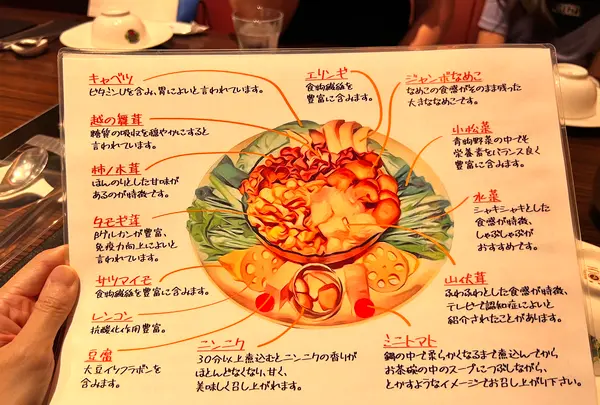 キャベツ
ビタミンUを含み、胃によいと言われています。
越の舞茸
糖質の吸収を穏やかにすると
言われています。
柿ノ木茸
ほんのりとした甘味が
あるのが特徴です。
タモギ茸
βグルカンが豊富、
免疫力向上によいと
言われています。
サツマイモ
食物繊維を豊富に含みます。
レンコン
抗酸化作用豊富。
豆腐
大豆イソフラボンを
含みます。
ニンニク
30分以上煮込むとニンニクの香りが
ほとんどなくなり、甘く、
美味しく召し上がれます。
エリンギ
食物繊維を
豊富に含みます。
ジャンボなめこ
なめこの食感がそのまま残った
大きななめこです。
小松菜
青物野菜の中でも
栄養素をバランス良く
豊富に含みます。
水菜
シャキシャキとした
食感が特徴、
しゃぶしゃぶが
おすすめです。
山伏茸
ふわふわとした食感が特徴、
テレビで認知症によいと
紹介されたことがあります。
ミニトマト
鍋の中で柔らかくなるまで煮込んでから、
お茶碗の中のスープにつぶしながら、
とかすようなイメージでお召し上がり下さい。